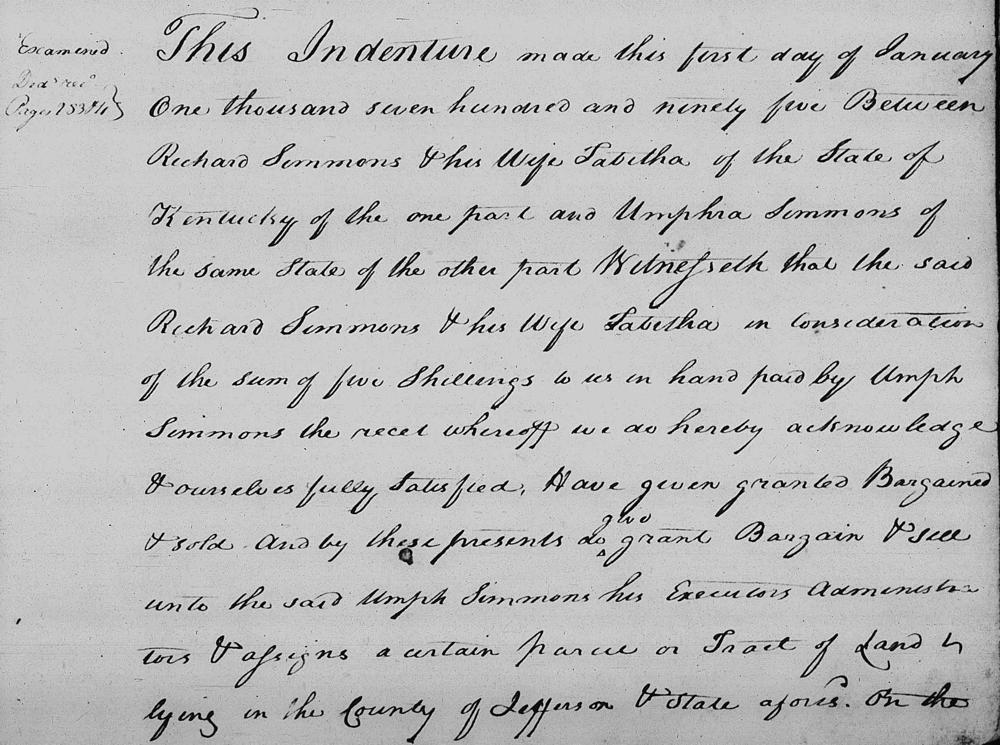 Examined.
Deds recd
Pages 283&4}
This Indenture made this first day of January
One thousand seven hundred and ninety five Between
Richard Simmons & his Wife Tabitha of the State of
Kentucky of the one part and Umphra Simmons of
the same State of the other part Witnesseth that the said
Richard Simmons & his Wife Tabitha in Consideration
of the sum of five Shillings to us in hand paid by Umph
Simmons the recet whereoff we do hereby acknowledge
& ourselves fully Satisfied, Have given granted Bargained
& sold And by these presents do give grant Bargain & sell
unto the said Umph Simmons his Executors Administra
tors & assigns a certain parcel or Tract of Land
lying in the County of Jefferson & State aforsd. On the